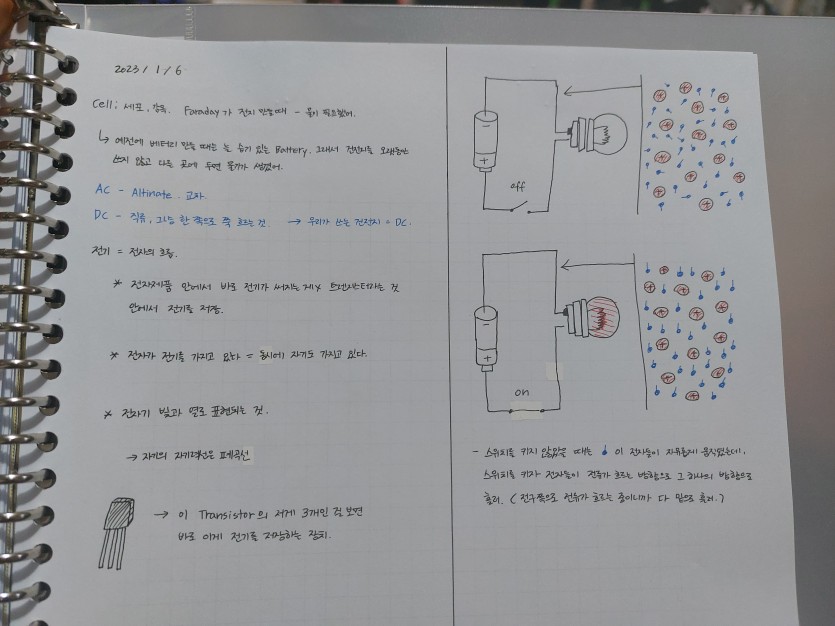 2023 / 1 / 6
Cell; 세포, 감옥. Faraday가 전지 만들때 - 물이 필요했어.
↳ 예전에 베터리 만들 때는 늘 습기 있는 Battery. 그래서 건전지를 오래동안
쓰지 않고 다른 곳에 두면 물기가 생겼어.
AC - Altinate. 교차
DC - 직류, 그냥 한 쪽으로 쭉 흐르는 것. → 우리가 쓰는 건전지 = DC.
전기 = 전자의 흐름.
* 전자제품 안에서 바로 전기가 써지는게X 트렌지스터라는 것
안에서 전기를 저장.
* 전자가 전기를 가지고 있다 = 동시에 자기도 가지고 있다.
* 전자기 빛과 열로 표현되는 것.
→ 자기의 자기력선은 폐곡선
→ 이 Transistor의 세개 3개인 걸 보면
바로 이게 전기를 저장하는 장치.
off
on
- 스위치를 키지 않았을 때는 이 전자들이 자유롭게 움직였는데,
스위치를 키자 전자들이 전류가 흐르는 방향으로 그 하나의 방향으로
흘러. (전구쪽으로 전류가 흐르는 중이니까 다 밑으로 흘러.)